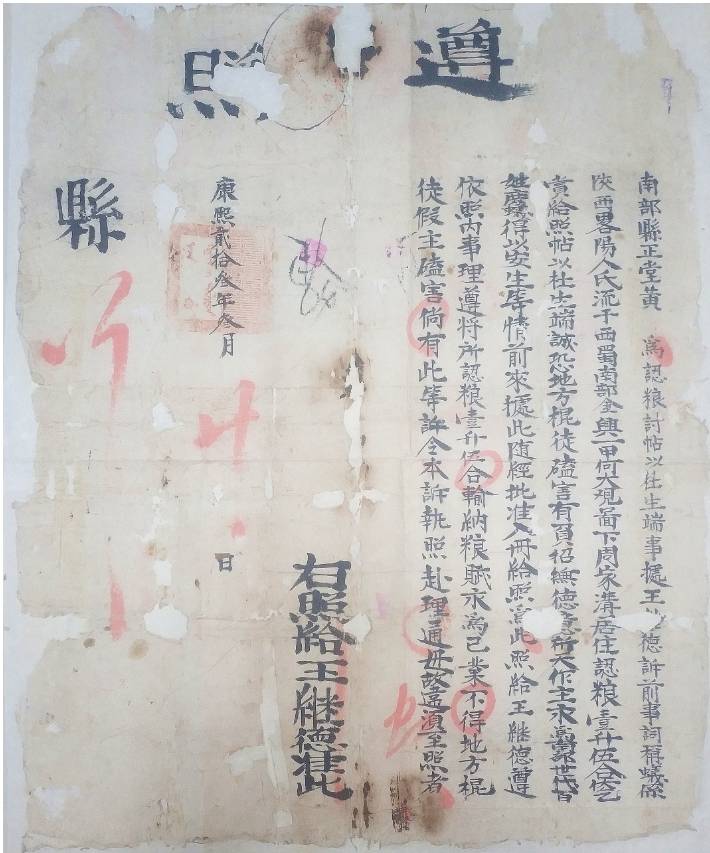 遵照
南部縣正堂黃 為認粮討帖以杜生端事據王 德訴前事詞稱蟻係
陜西畧陽人氏流于西蜀南部金興一甲何大現啚下周家溝居住認粮壹升伍合 乞
賞給照帖以杜生端誠恐地方棍徒磕害有負招撫德意祈天作主永 世代百
姓 得以安生等情前來據此随經批准入冊給照為此照給王継德遵
依照內事理遵將所認粮壹升伍合輸納粮賦永為已業不得地方棍
徒假主磕害倘有此等許令本訴執照赴理通毋故違湏至照者
右照給王継德准此
康熙貳拾叁年叁月 日
縣